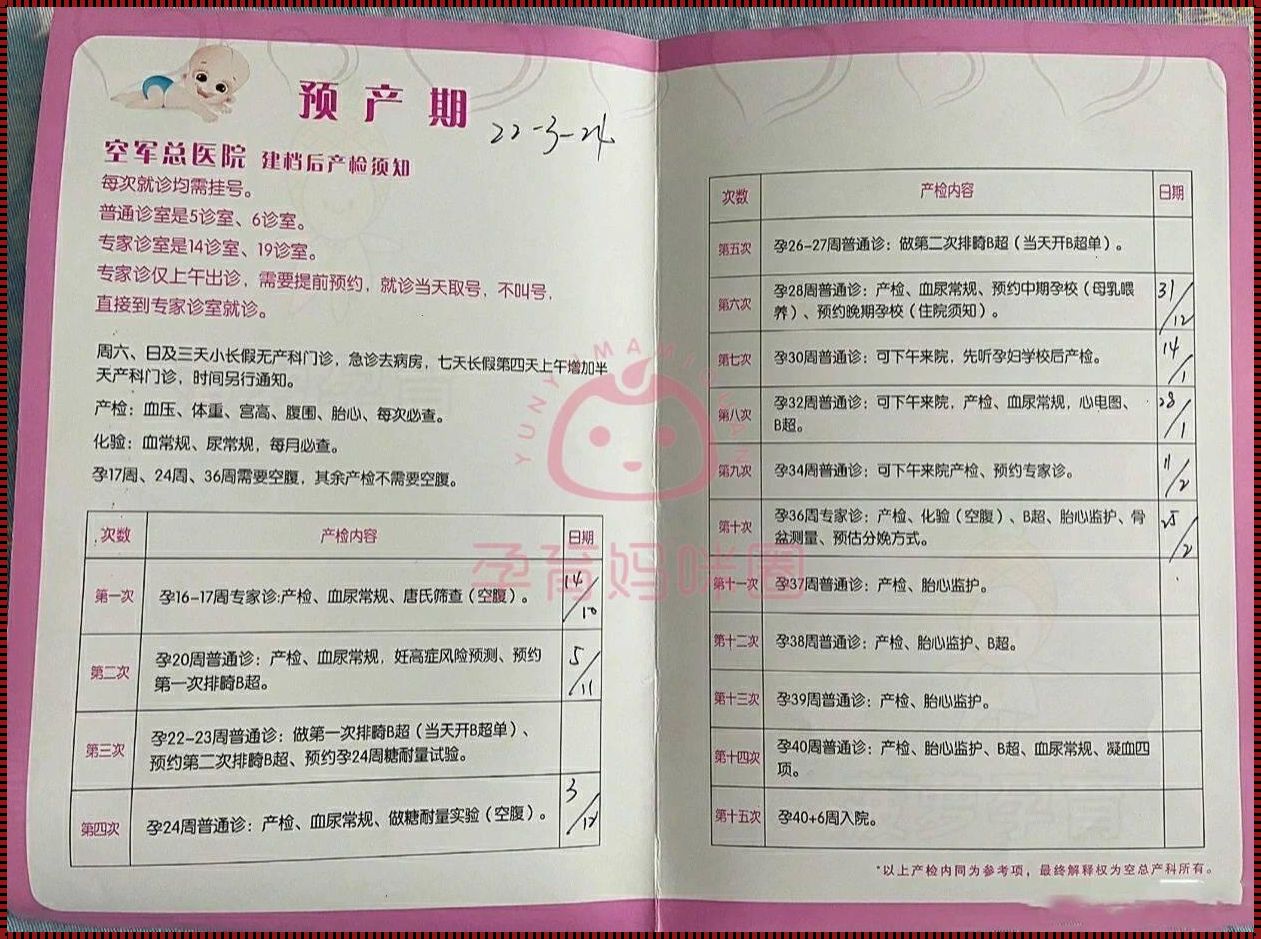 预产期
22-3-24
空军总医院 建档后产检须知
每次就诊均需挂号。
普通诊室是5诊室、6诊室。
专家诊室是14诊室、19诊室。
专家诊仅上午出诊，需要提前预约，就诊当天取号，不叫号，
直接到专家诊室就诊。
周六、日及三天小长假无产科门诊，急诊去病房，七天长假第四天上午增加半
天产科门诊，时间另行通知。
产检：血压、体重、宫高、腹围、胎心、每次必查。
化验：血常规、尿常规，每月必查。
孕17周、24周、36周需要空腹，其余产检不需要空腹。
次数 产检内容 日期
第一次 孕16-17周专家诊:产检、血尿常规、唐氏筛查（空腹）。 14/10
第二次 孕20周普通诊：产检、血尿常规，妊高症风险预测、预约
第一次排畸B超。 5/11
第三次 孕22-23周普通诊：做第一次排畸B超（当天开B超单）、
预约第二次排畸B超、预约孕24周糖耐量试验。
第四次 孕24周普通诊：产检、血尿常规、做糖耐量实验（空腹）。 3/12
次数 产检内容 日期
第五次 孕26-27周普通诊：做第二次排畸B超（当天开B超单）。
第六次 孕28周普通诊：产检、血尿常规、预约中期孕校（母乳喂
养）、预约晚期孕校（住院须知）。 31/12
第七次 孕30周普通诊：可下午来院，先听孕妇学校后产检。 14/1
第八次 孕32周普通诊：可下午来院，产检、血尿常规，心电图、
B超。 28/1
第九次 孕34周普通诊：可下午来院产检、预约专家诊。 11/2
第十次 孕36周专家诊：产检、化验（空腹）、B超、胎心监护、骨
盆测量、预估分娩方式。 25/2
第十一次 孕37周普通诊：产检、胎心监护。
第十二次 孕38周普通诊：产检、胎心监护、B超。
第十三次 孕39周普通诊：产检、胎心监护。
第十四次 孕40周普通诊：产检、胎心监护、B超、血尿常规、凝血四
项。
第十五次 孕40+6周入院。
*以上产检内同为参考项，最终解释权为空总产科所有。
YUNYUMAMIQUAN
孕育妈咪圈